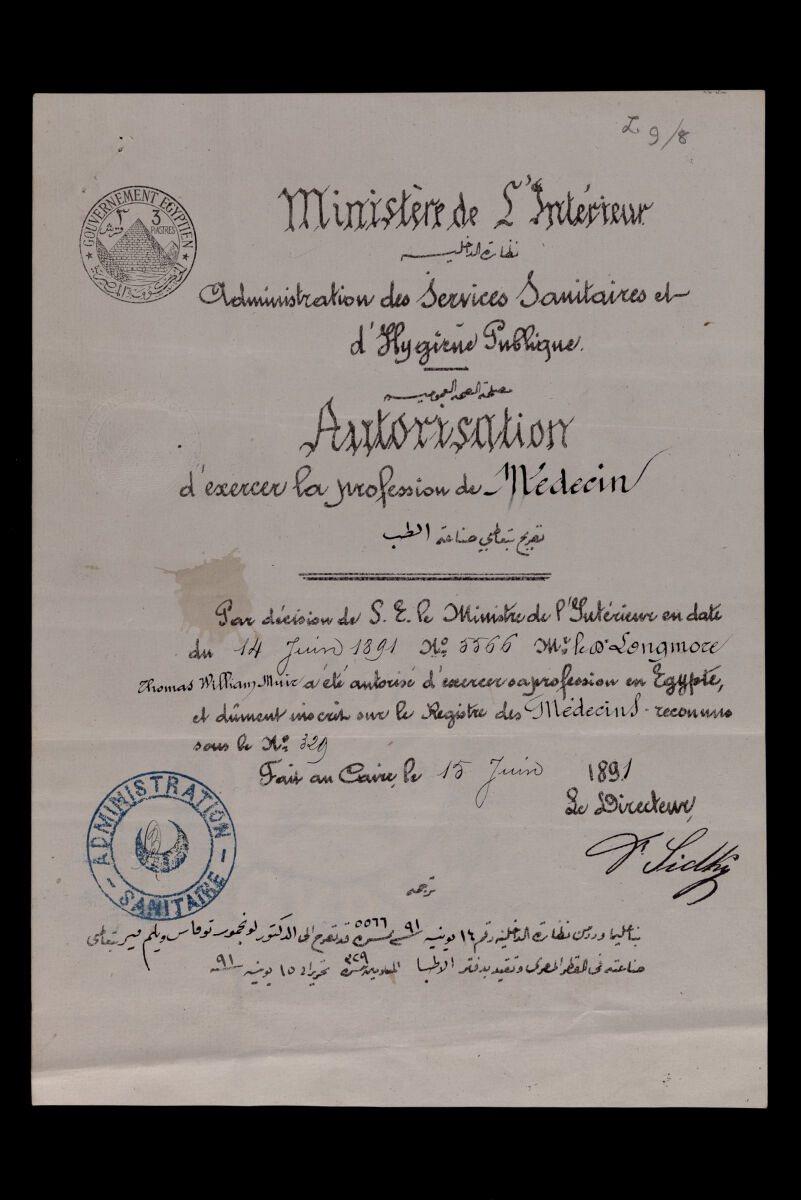 L. 9/8
GOUVERNEMENT EGYPTIEN
٣ 3
PIASTRES
الحكومة المصرية
Ministère de L'Intérieur
نظارة الداخلية
Administration des Services Sanitaires et
d'Hygiène Publique.
مصلحة الصحة العمومية
Autorisation
d'exercer la profession de Médecin
تصريح بتعاطي صناعة الطب
Par décision de S. E. le Ministre de l'Intérieur en date
du 14 Juin 1891 No 5566 Mr le Dr Longmore
Thomas William Muir a été autorisé d'exercer sa profession en Egypte,
et dûment inscrit sur le Registre des Médecins reconnus
sous le No 329
Fait au Caire, le 15 Juin 1891
Le Directeur,
Dr Sidky
ADMINISTRATION
SANITAIRE
ترجمه
بناء على ما ورد من نظارة الداخلية رقم ١٤ يونيه ٩١ نمره ٥٥٦٦ قد تصرح الى الدكتور لونجمور توماس ويليم مير بتعاطى
صناعته فى القطر المصرى وتقيد بدفتر الاطبا نمرة ٣٢٩ تحريرا فى ١٥ يونيه ٩١